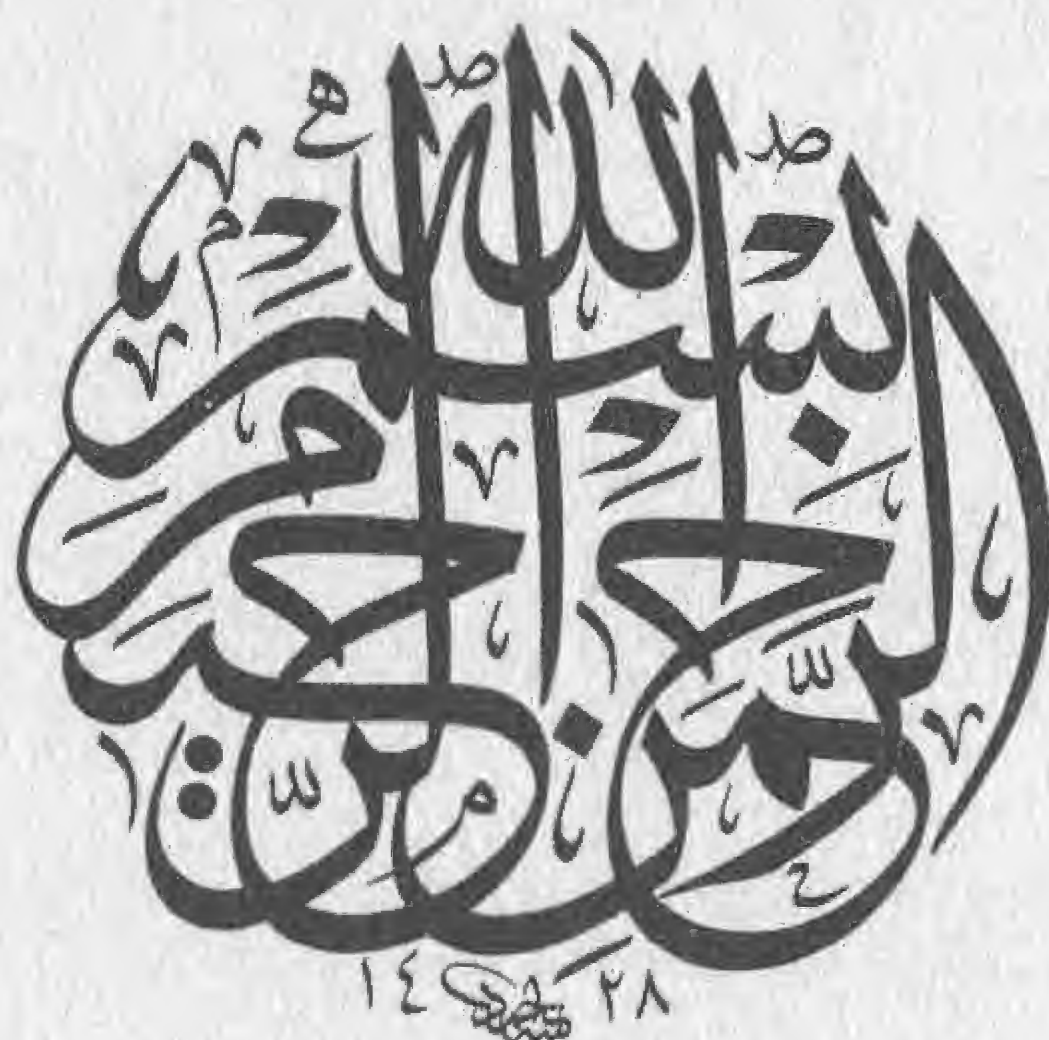 بسم الله الرحمن الرحيم
١٤٢٨